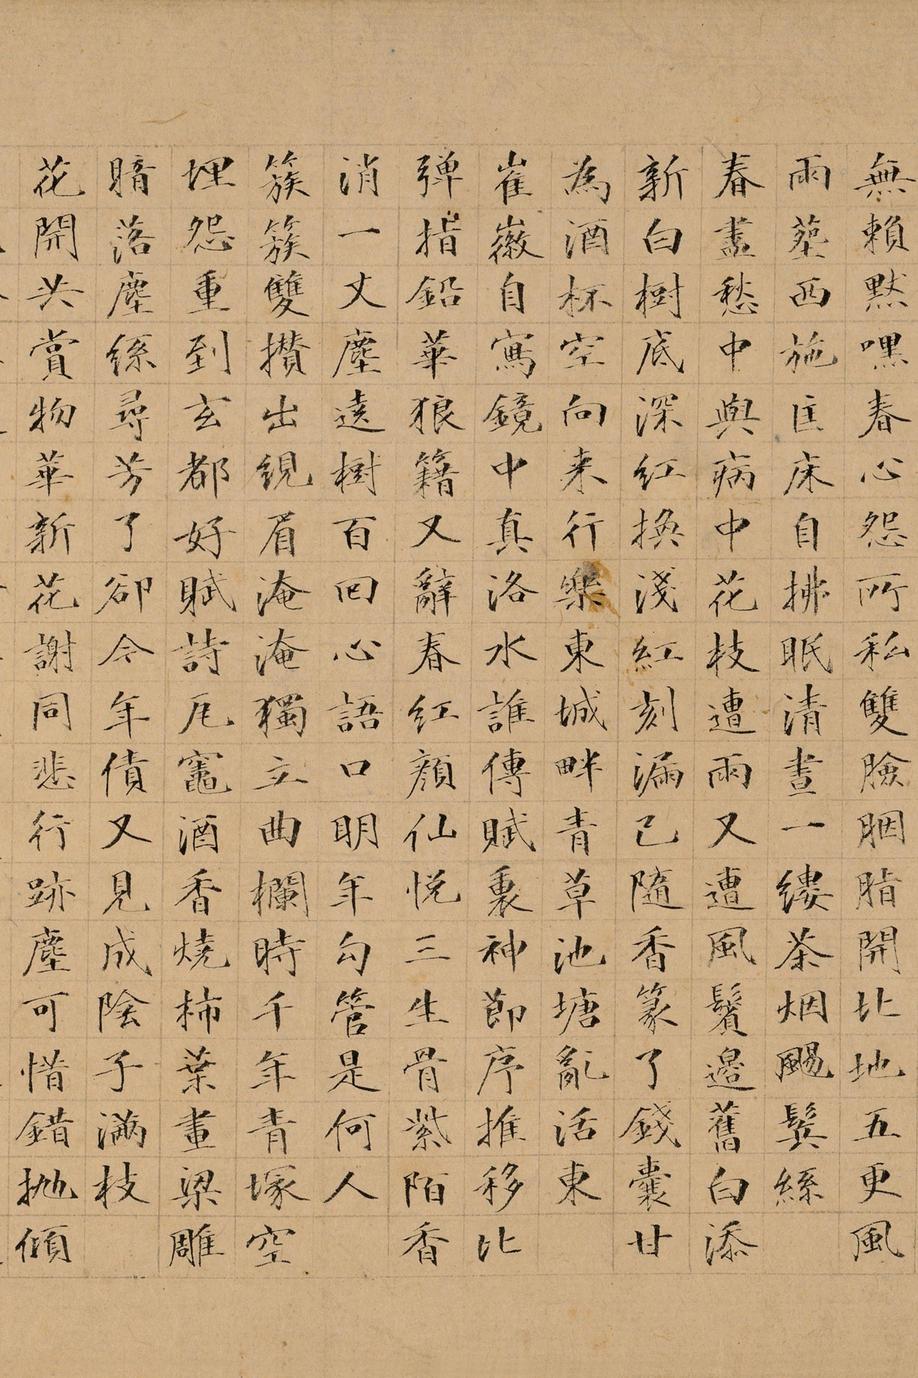 無賴黙嘿春心怨所私雙臉胭脂開北地五更風
雨葬西施匡床自拂眠清晝一縷茶烟颺鬓絲
春晝愁中與病中花枝遭雨又遭風鬢邊舊白添
新白樹底深紅換淺紅刻漏已隨香篆了錢囊甘
為酒杯空向来行樂東城畔青草池塘亂活東
崔徽自寫鏡中真洛水誰傳賦裏神節序推移比
彈指鉛華狼籍又辭春紅顏仙悅三生骨紫陌香
消一丈塵遠樹百回心語口明年勾管是何人
簇簇雙攅出絸眉淹淹獨立曲欄時千年青塚空
埋怨重到玄都好賦詩厇竈酒香燒柿葉畫梁雕
暗落塵絲尋芳了卻今年債又見成陰子滿枝
花開共賞物華新花謝同悲行跡塵可惜錯抛傾